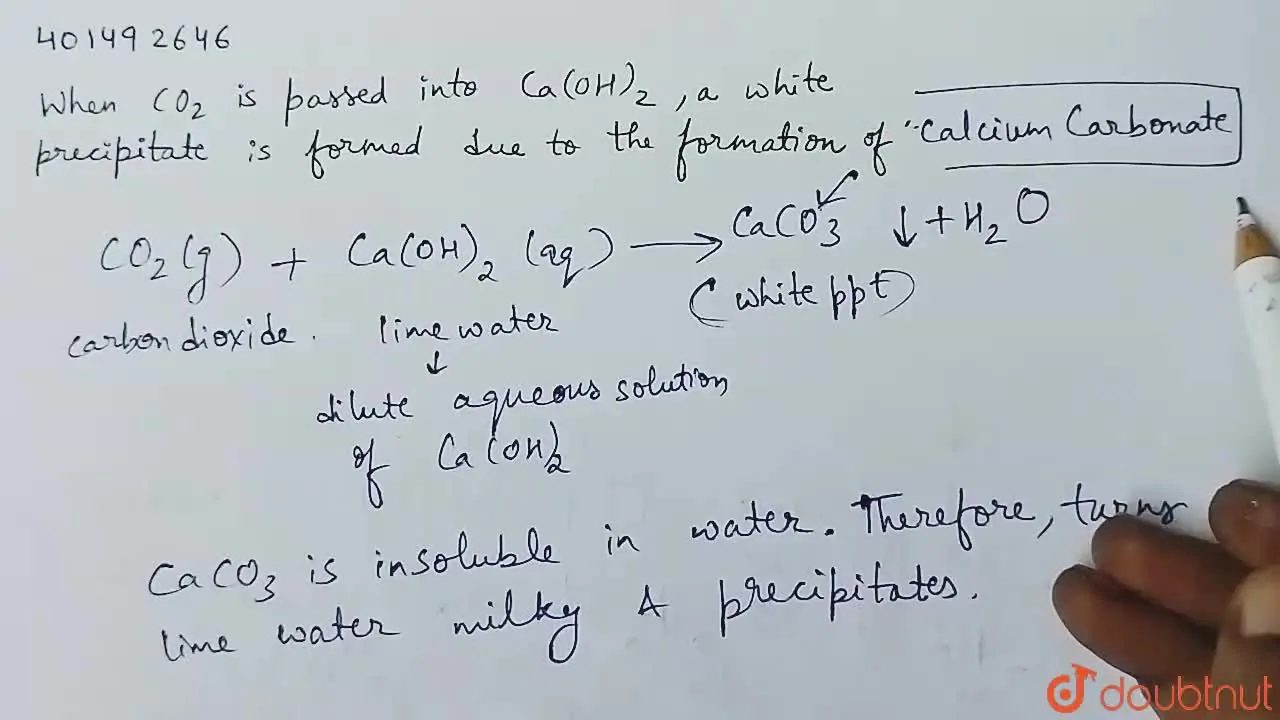 401492646
When CO2 is passed into Ca(OH)2, a white
precipitate is formed due to the formation of "Calcium Carbonate
CO2(g) + Ca(OH)2 (aq) → CaCO3 ↓ + H2O
(white ppt)
carbon dioxide. lime water
↓
dilute aqueous solution
of Ca(OH)2
CaCO3 is insoluble in water. Therefore, turns
lime water milky & precipitates.
doubtnut